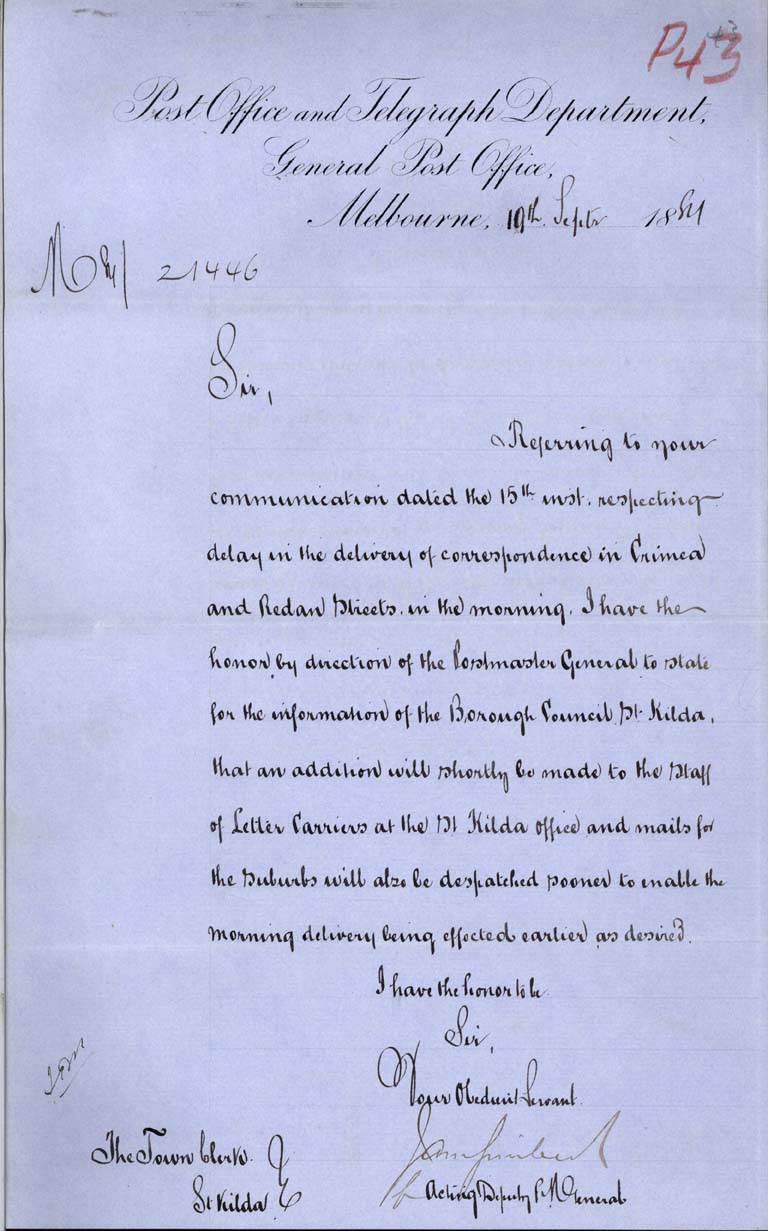 P43
Post Office and Telegraph Department,
General Post Office,
Melbourne, 19th Septr 1884
M84/ 21446
Sir,
Referring to your
communication dated the 15th inst. respecting
delay in the delivery of correspondence in Crimea
and Redan Streets, in the morning, I have the
honor, by direction of the Postmaster General to state
for the information of the Borough Council, St. Kilda,
that an addition will shortly be made to the Staff
of Letter Carriers at the St Kilda office and mails for
the suburbs will also be despatched sooner to enable the
morning delivery being effected earlier as desired.
I have the honor to be
Sir,
Your Obedient Servant
Acting Deputy P.M. General
The Town Clerk
St Kilda